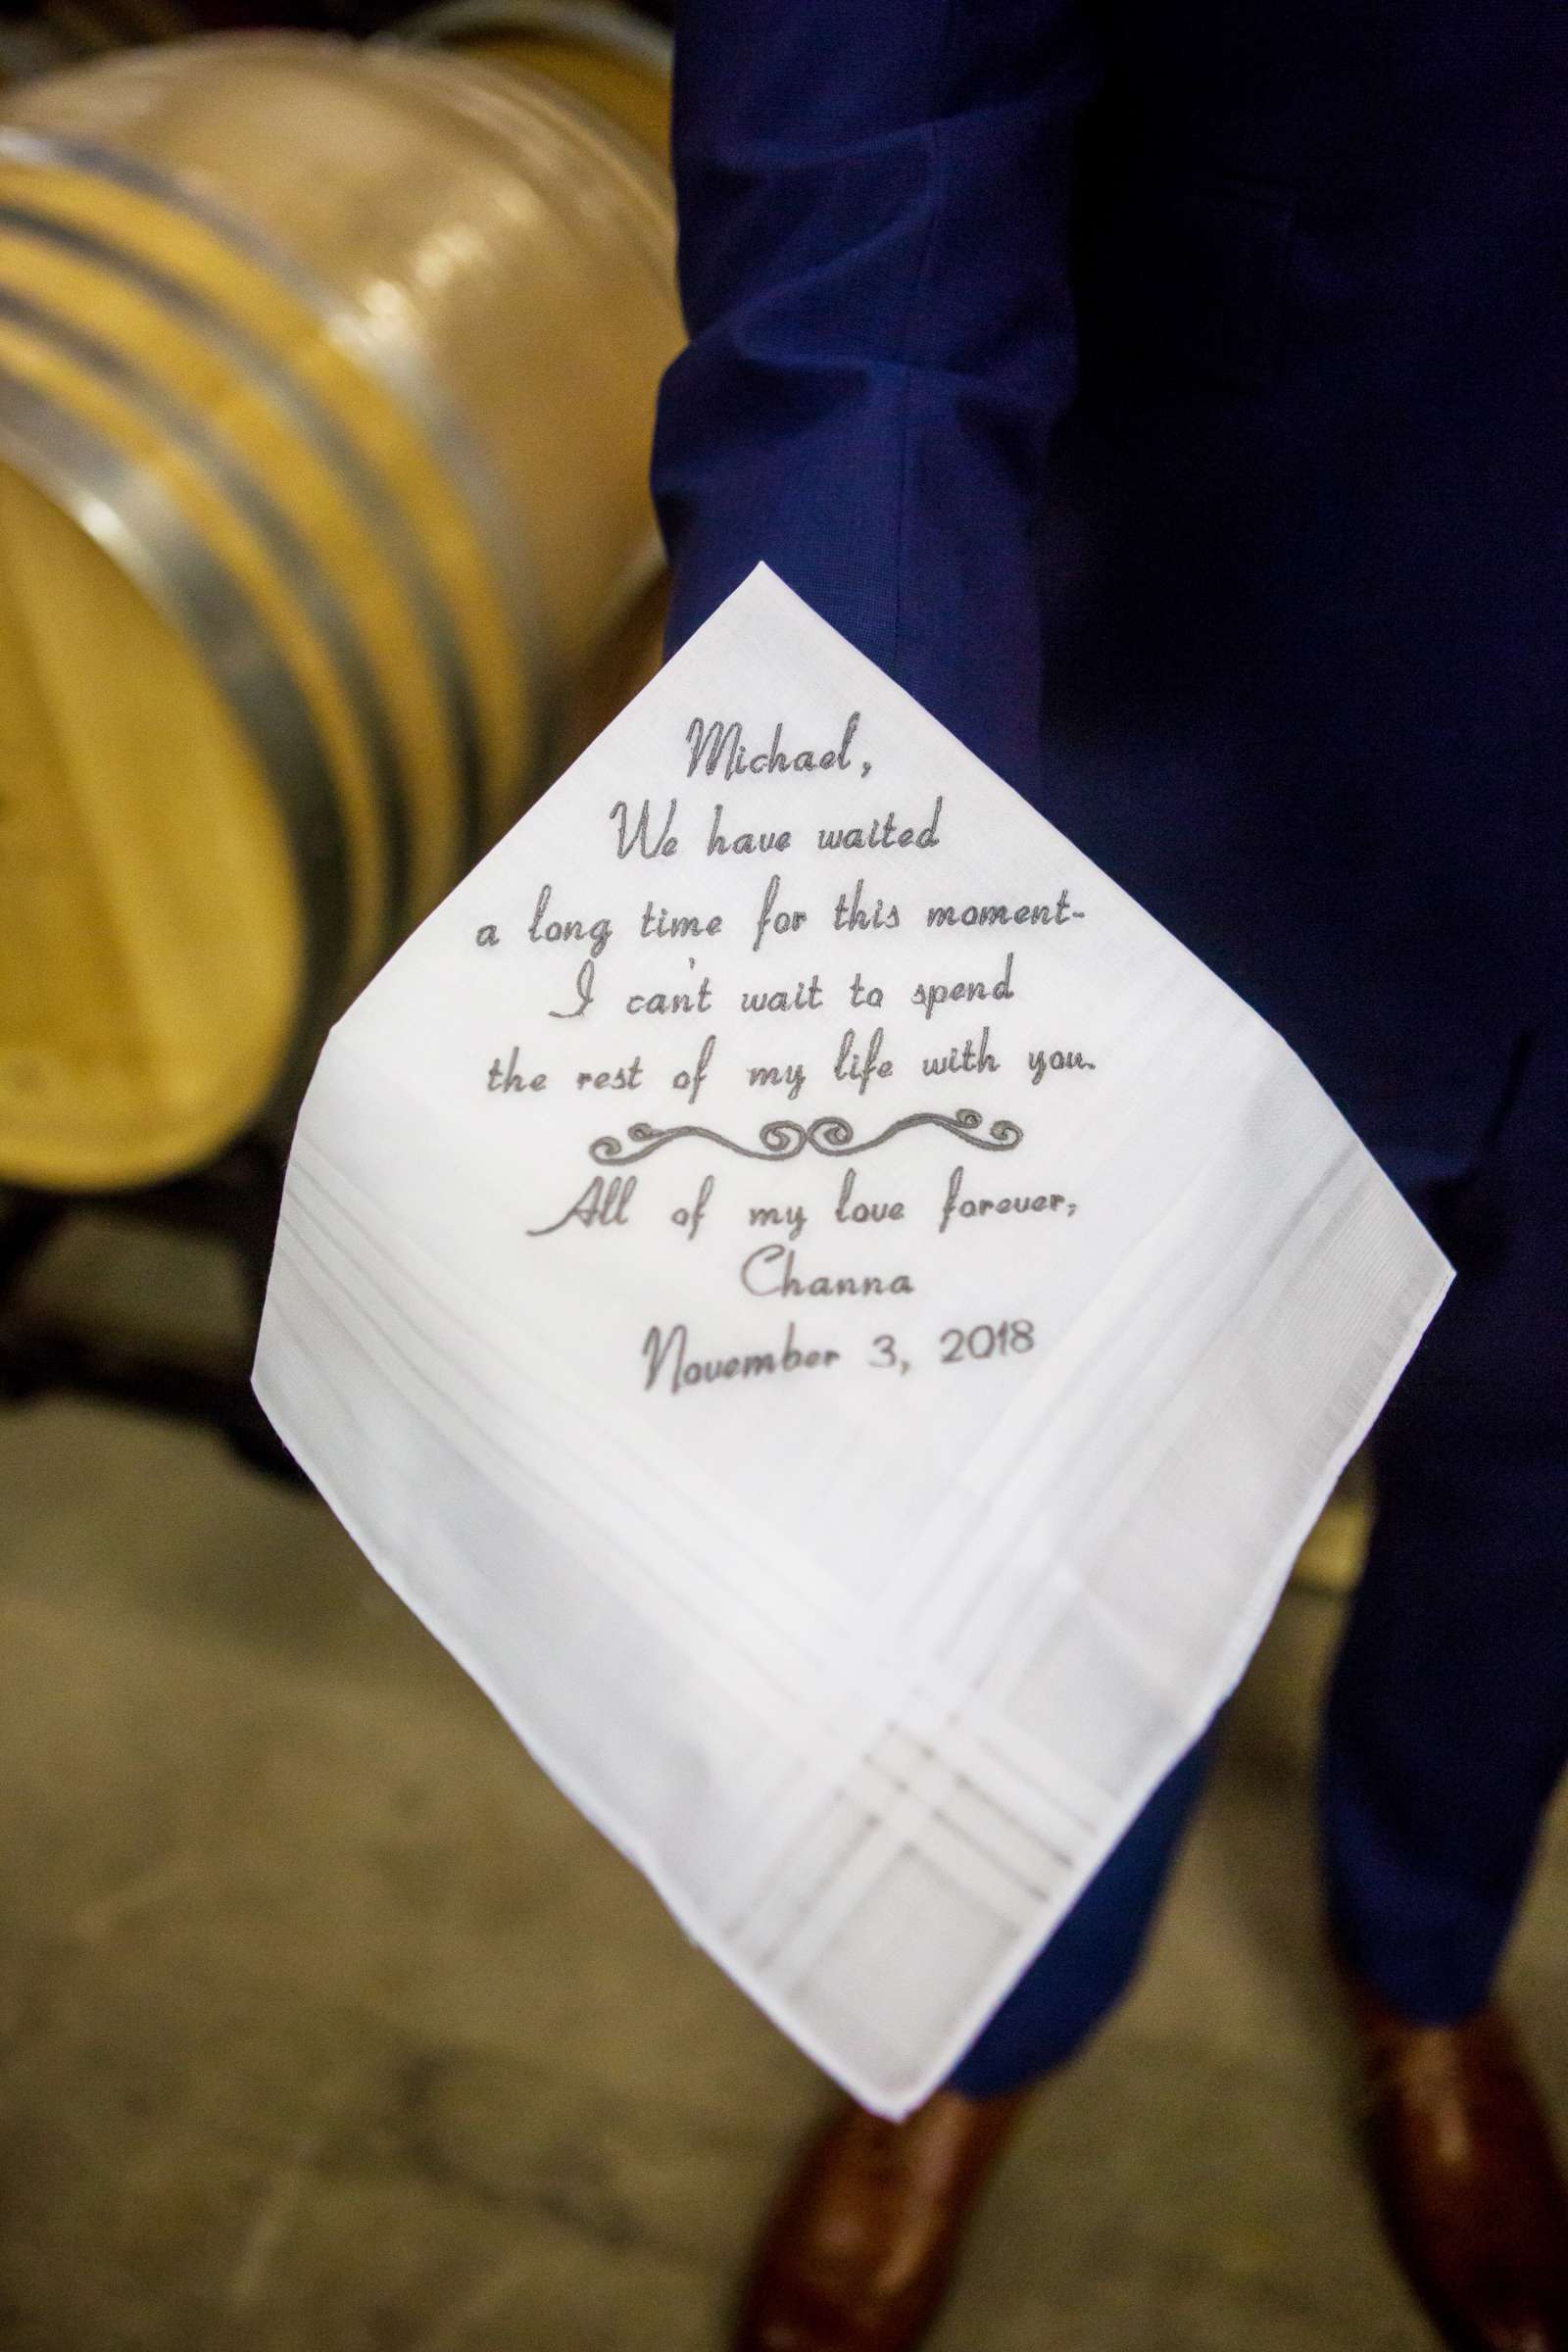 Michael,
We have waited
a long time for this moment-
I can't wait to spend
the rest of my life with you.
All of my love forever,
Channa
November 3, 2018